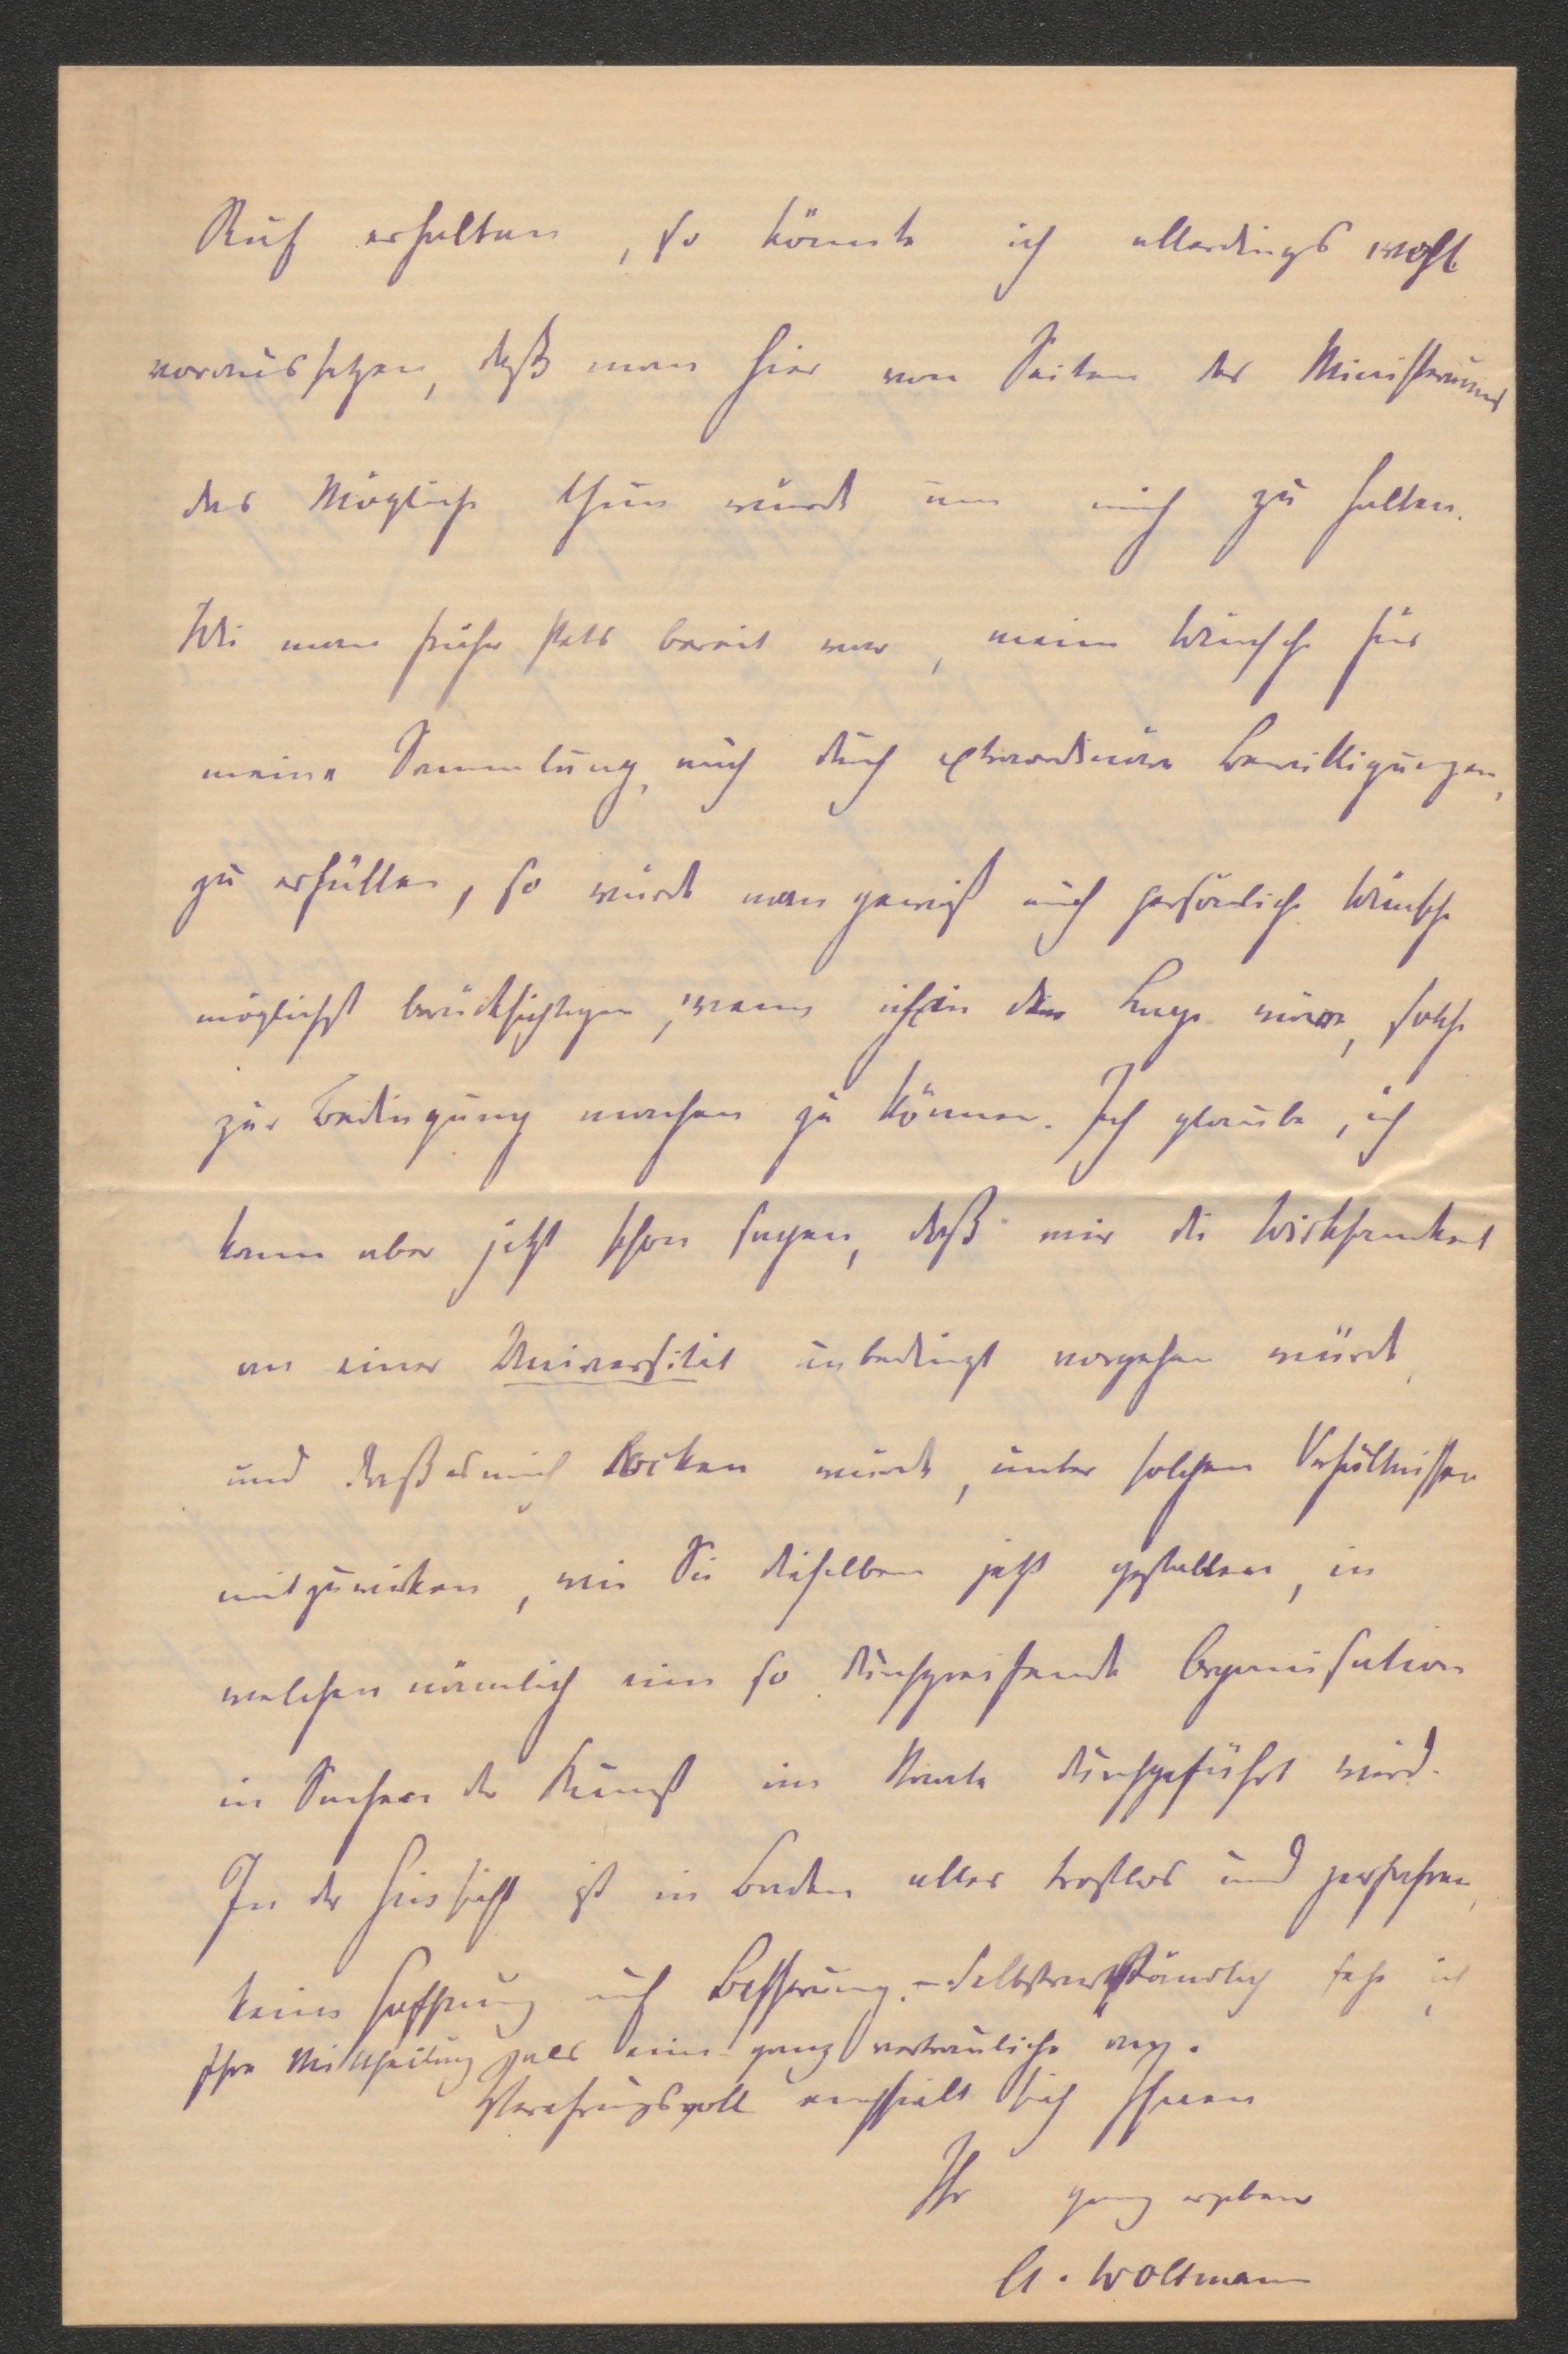 Ruf erhalten, so könnte ich allerdings wohl
voraussetzen, daß man hier von Seiten des Ministeriums
das Mögliche thun würde um mich zu halten.
Wie man früher stets bereit war, meine Wünsche für
meine Sammlung, auch durch extraordinäre Bewilligungen,
zu erfüllen, so würde man gewiß auch persönliche Wünsche
möglichst berücksichtigen, wenn ich in der Lage wäre, solche
zur Bedingung machen zu können. Ich glaube, ich
kann aber jetzt schon sagen, daß mir die Wirksamkeit
an einer Universität unbedingt vorgehen würde,
und daß es mich locken würde, unter solchen Verhältnissen
mitzuwirken, wie Sie dieselben jetzt gestalten, in
welchen nämlich eine so durchgreifende Organisation
in Sachen der Kunst im Staate durchgeführt wird.
In der Hinsicht ist in Baden alles trostlos und zerfahren,
keine Hoffnung auf Besserung. – Selbstverständlich sehe ich
Ihre Mittheilung als eine ganz vertrauliche an.
Verehrungsvoll empfielt sich Ihnen
Ihr ganz ergebener
A. Woltmann